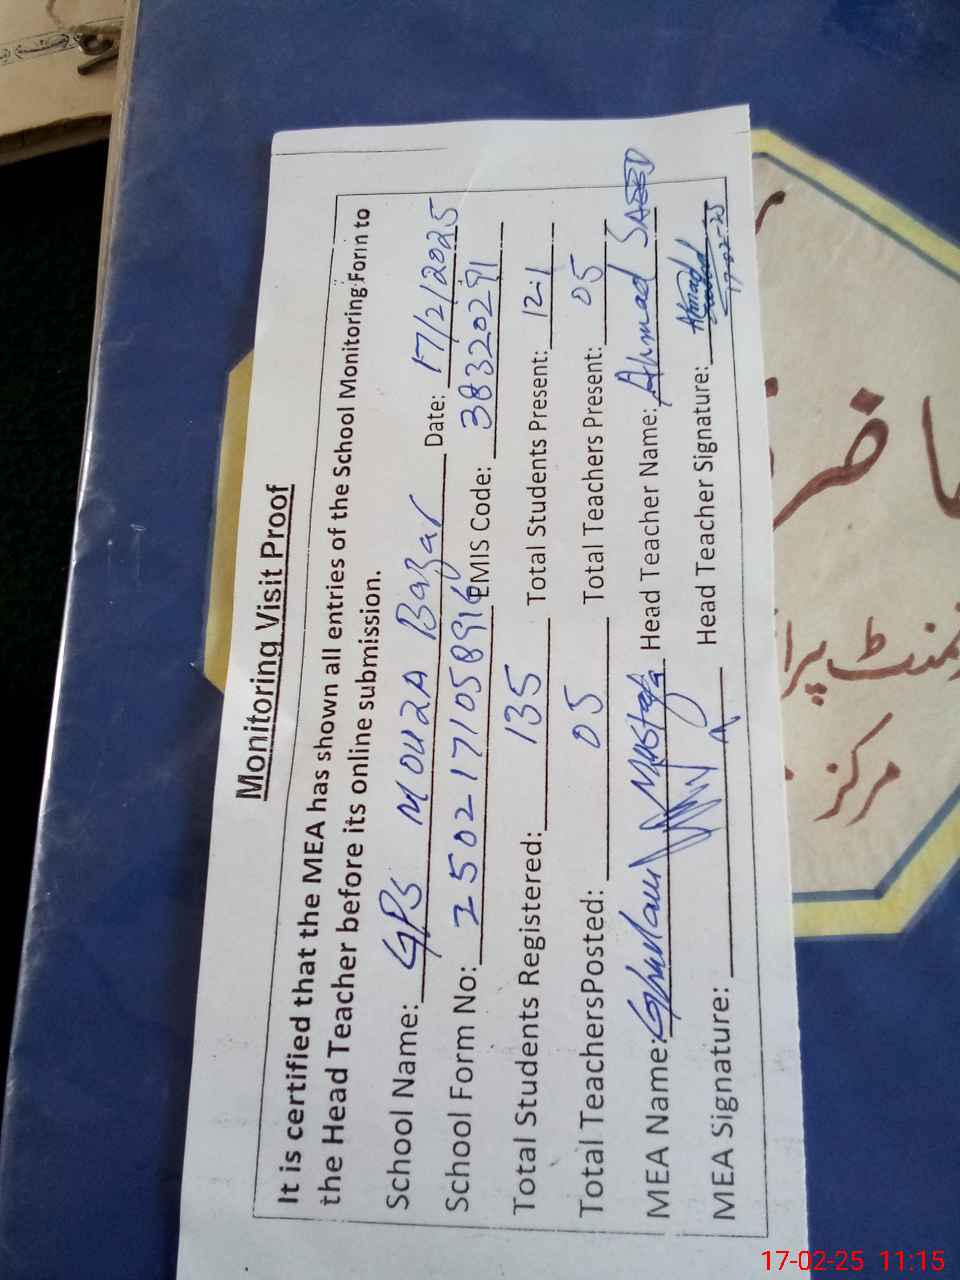 Monitoring Visit Proof
It is certified that the MEA has shown all entries of the School Monitoring Form to
the Head Teacher before its online submission.
School Name: GPS MOUZA Bazar Date: 17/2/2025
School Form No: 2502171058916 EMIS Code: 38320291
Total Students Registered: 135 Total Students Present: 121
Total TeachersPosted: 05 Total Teachers Present: 05
MEA Name: Ghulam Mustafa Head Teacher Name: Ahmad SAEED
MEA Signature: Head Teacher Signature: Ahmad Saeed
17-02-25
مرکز
17-02-25 11:15